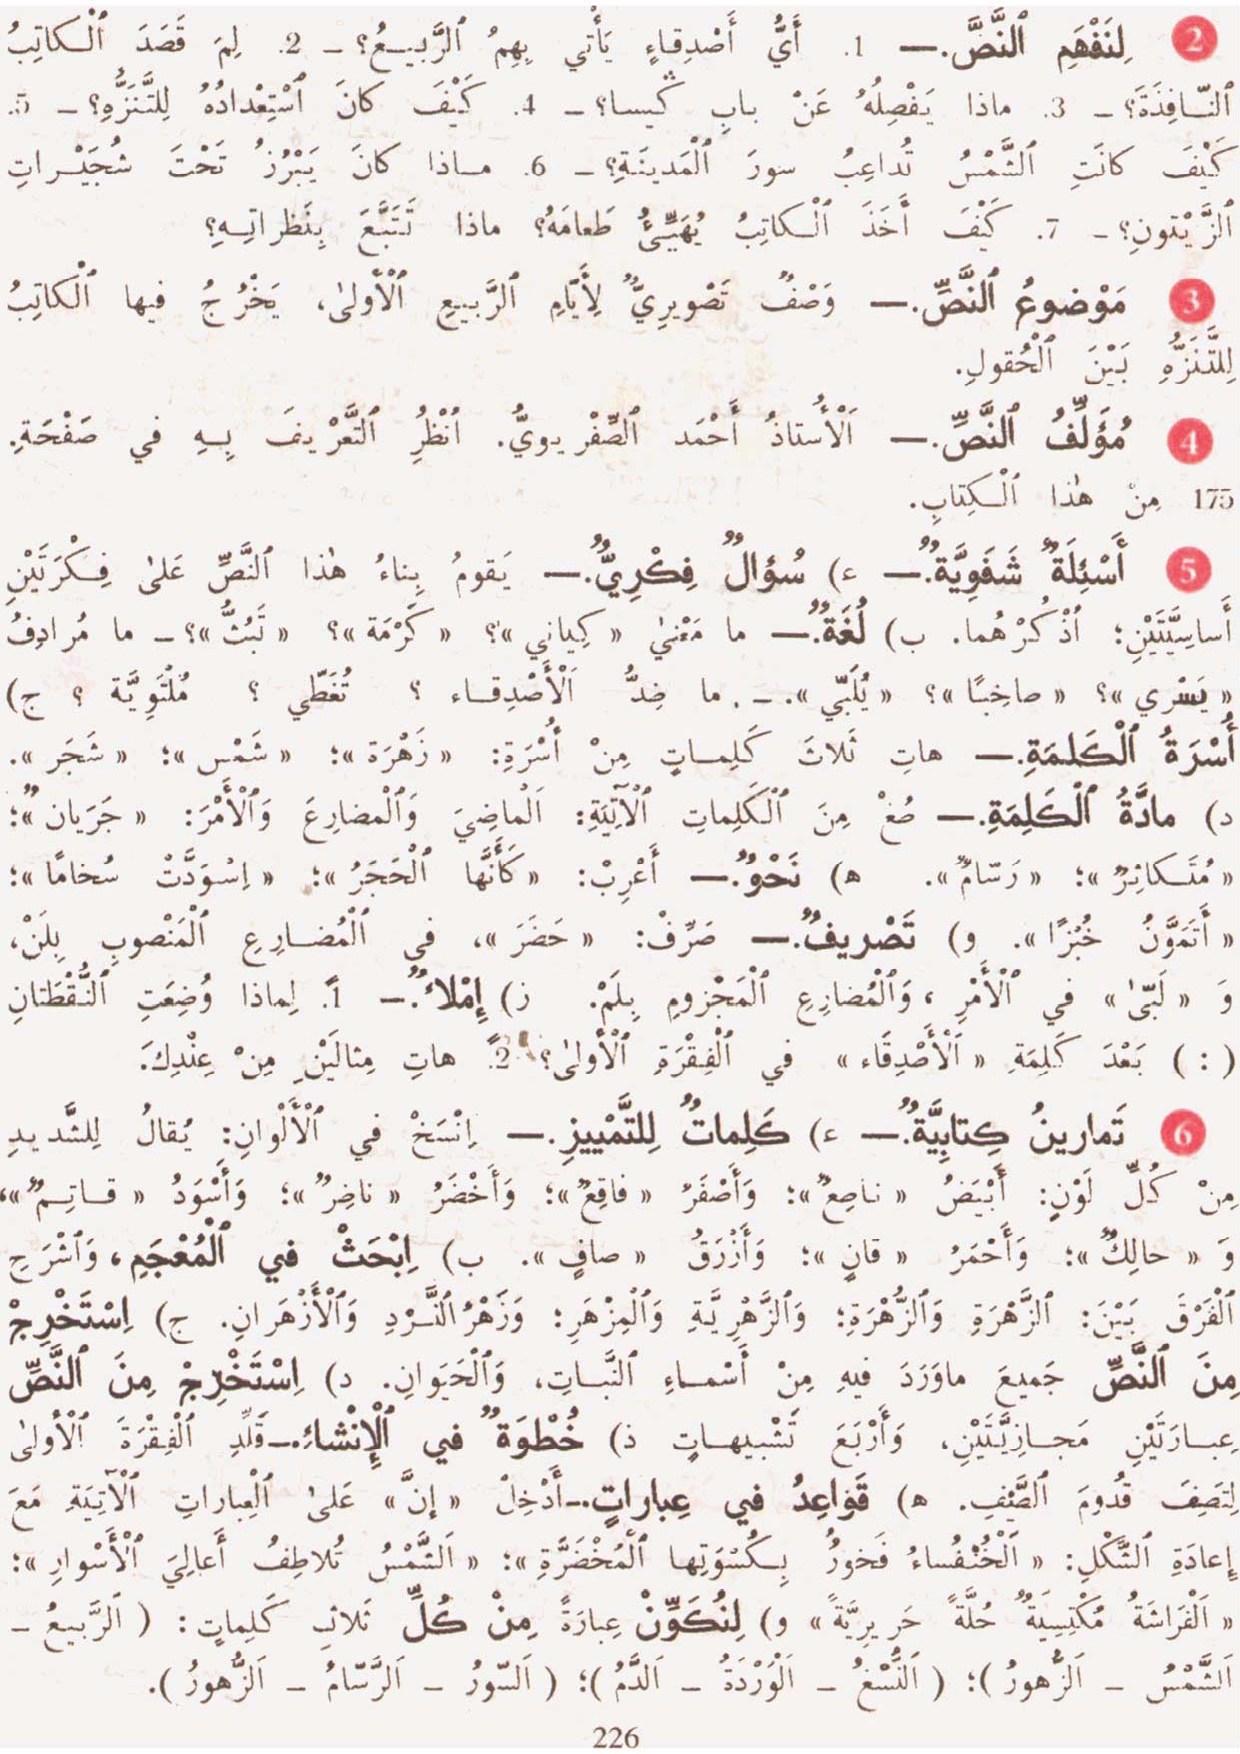 2 لِنَفْهَمِ ٱلنَّصَّ.— 1. أَيُّ أَصْدِقاءٍ يَأْتي بِهِمُ ٱلرَّبيـعُ؟ – 2. لِمَ قَصَدَ ٱلْـكاتِبُ
ٱلنّـافِذَةَ؟ – 3. ماذا يَفْصِلُهُ عَنْ بابِ ݣيسا؟ – 4. كَيْفَ كانَ ٱسْتِعْدادُهُ لِلتَّنَزُّهِ؟ – 5.
كَيْفَ كانَتِ ٱلشَّمْسُ تُداعِبُ سورَ ٱلْمَدينَـةِ؟ – 6. مـاذا كانَ يَبْرُزُ تَحْتَ شُجَيْـراتِ
ٱلزَّيْتونِ؟ – 7. كَيْفَ أَخَذَ ٱلْـكاتِبُ يُهَيِّـئُ طَعامَهُ؟ ماذا تَتَبَّعَ بِنَظراتِـهِ؟
3 مَوْضوعُ ٱلنَّصِّ.— وَصْفٌ تَصْويرِيٌّ لِأَيّامِ ٱلرَّبيعِ ٱلْأولىٰ، يَخْرُجُ فيها ٱلْكاتِبُ
لِلتَّنَزُّهِ بَـيْنَ ٱلْحُقولِ.
4 مُؤَلِّفُ ٱلنَّصِّ.— اَلْأُستاذُ أَحْمَد ٱلصِّفْريويُّ. اُنْظُرِ ٱلتَّعْريفَ بِـهِ في صَفْحَةِ.
175 مِنْ هٰذا ٱلْـكِتابِ.
5 أَسْئِلَةٌ شَفَوِيَّةٌ.— ء) سُؤالٌ فِكْرِيٌّ.— يَقومُ بِناءُ هٰذا ٱلنَّصِّ عَلىٰ فِـكْرَتَيْنِ
أَساسِيَّتَيْنِ؛ اُذْكُرْهُما. ب) لُغَةٌ.— ما مَعْنىٰ « كِياني »؟ « كَرْمَة »؟ « تَبُثُّ »؟ – ما مُرادِفُ
« يَسْري »؟ « صاخِبًا »؟ « يُلَبّي ». – . ما ضِدُّ اَلْأَصْدِقـاء ؟ تُغَطّي ؟ مُلْتَوِيَّة ؟ ج)
أُسْرَةُ ٱلْكَلمَةِ.— هاتِ ثَلاثَ كَلِمـاتٍ مِنْ أُسْرَةِ: « زَهْرَة »؛ « شَمْس »؛ « شَجَر ».
د) مادَّةُ ٱلْكَلِمَةِ.— صُغْ مِنَ ٱلْكَلِماتِ ٱلْآتِيَةِ: اَلْماضِيَ وَٱلْمضارِعَ وَٱلْأَمْرَ: « جَرَيان »؛
« مُتَـكاثِرٌ »؛ « رَسّامٌ ». ه) نَحْوٌ.— أَعْرِبْ: « كَأَنَّها ٱلْحَجَرُ »؛ « اِسْوَدَّتْ سُخامًا »؛
« أَتَمَوَّنُ خُبْزًا ». و) تَصْريفٌ.— صَرِّفْ: « حَضَرَ »، في ٱلْمُضـارِعِ ٱلْمَنْصوبِ بِلَنْ،
وَ « لَبّىٰ » في ٱلْأَمْرِ ، وَٱلْمُضارِعِ ٱلْمَجْزومِ بِلَمْ. ز) إِمْلاءٌ.– 1. لِماذا وُضِعَتِ ٱلنُّقْطَتانِ
( : ) بَعْدَ كَلِمَةِ « اَلْأَصْدِقَاء » في ٱلْفِقْرَةِ ٱلْأولىٰ؟ 2. هاتِ مِثالَيْنِ مِنْ عِنْدِكَ.
6 تَمارينُ كِتابِيَّةٌ.— ء) كَلِماتٌ لِلتَّمْييزِ.— اِنْسَخْ في ٱلْأَلْوانِ: يُقالُ لِلشَّديدِ
مِنْ كُلِّ لَوْنٍ: أَبْيَضُ « ناصِعٌ »؛ وَأَصْفَرُ « فاقِعٌ »؛ وَأَخْضَرُ « ناضِرٌ »؛ وَأَسْوَدُ « قـاتِـمٌ »،
وَ « حالِكٌ »؛ وَأَحْمَرُ « قانٍ »؛ وَأَزْرَقُ « صافٍ ». ب) اِبْحَثْ في ٱلْمُعْجَمِ، وَٱشْرَحِ
ٱلْفَرْقَ بَيْنَ: ٱلزَّهْرَةِ وَٱلزُّهْرَةِ؛ وَٱلزَّهْرِيَّةِ وَٱلْمِزْهَرِ؛ وَزَهْرُ ٱلنَّـرْدِ وَٱلْأَزْهَرانِ. ج) اِسْتَخْرِجْ
مِنَ ٱلنَّصِّ جَميعَ ماوَرَدَ فيهِ مِنْ أَسْمـاءِ ٱلنَّبـاتِ، وَٱلْحَيَوانِ. د) اِسْتَخْرِجْ مِنَ ٱلنَّصِّ
عِبـارَتَيْنِ مَجـازِيَّتَيْنِ، وَأَرْبَعَ تَشْبيهـاتٍ ذ) خُطْوَةٌ في ٱلْإِنْشاءِ.—قَلِّدِ ٱلْفِقْرَةَ ٱلْأولىٰ
لِتَصِفَ قُدُومَ ٱلصَّيْفِ. ه) قَواعِدُ في عِباراتٍ.—أَدْخِلْ « إِنَّ » عَلىٰ ٱلْعِباراتِ ٱلْآتِيَةِ مَعَ
إِعادَةِ ٱلشَّكْلِ: « اَلْخُنْفُساءُ فَخورُ بِـكُسْوَتِها ٱلْمُخْضَرَّةِ »؛ « اَلشَّمْسُ تُلاطِفُ أَعالِيَ ٱلْأَسْوارِ »؛
« اَلْفَراشَةُ مُكْتَسِيَةٌ حُلَّةً حَريرِيَّةً » و) لِنُكَوِّنْ عِبارَةً مِنْ كُلِّ ثَلاثِ كَلِماتٍ: ( اَلرَّبيعُ –
اَلشَّمْسُ – اَلزُّهورُ )؛ ( اَلنُّسْغُ – اَلْوَرْدَةُ – اَلدَّمُ )؛ ( اَلسّورُ – اَلرَّسّامُ – اَلزُّهورُ ).
226